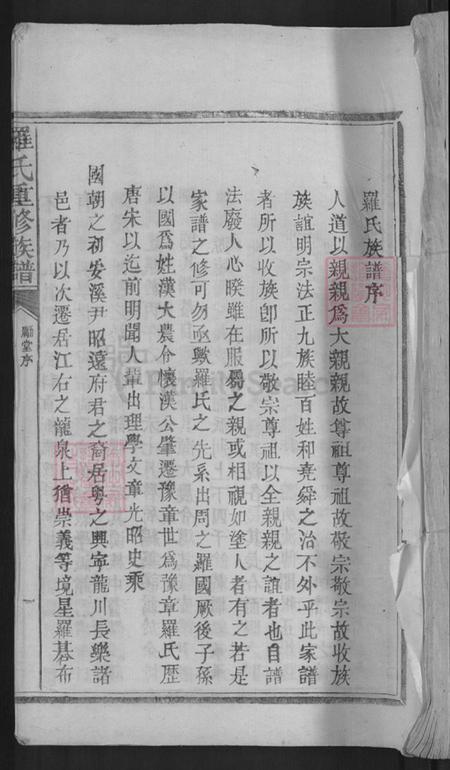 羅氏族譜序
人道以親親爲大親親故尊祖尊祖故敬宗敬宗故收族
族誼明宗法正九族睦百姓和堯舜之治不外乎此家譜
者所以收族卽所以敬宗尊祖以全親親之誼者也自譜
法廢人心睽雖在服屬之親或相視如塗人者有之若是
家譜之修可勿亟歟羅氏之先系出周之羅國厥後子孫
以國爲姓漢大農令懷漢公肇遷豫章世爲豫章羅氏歷
唐宋以迄前明聞人輩出理學文章光昭史乘
國朝之初安溪尹昭遠府君之裔居粤之興寧龍川長樂諸
邑者乃以次遷居江右之龍泉上猶崇義等境星羅棊布
羅氏重修族譜
序